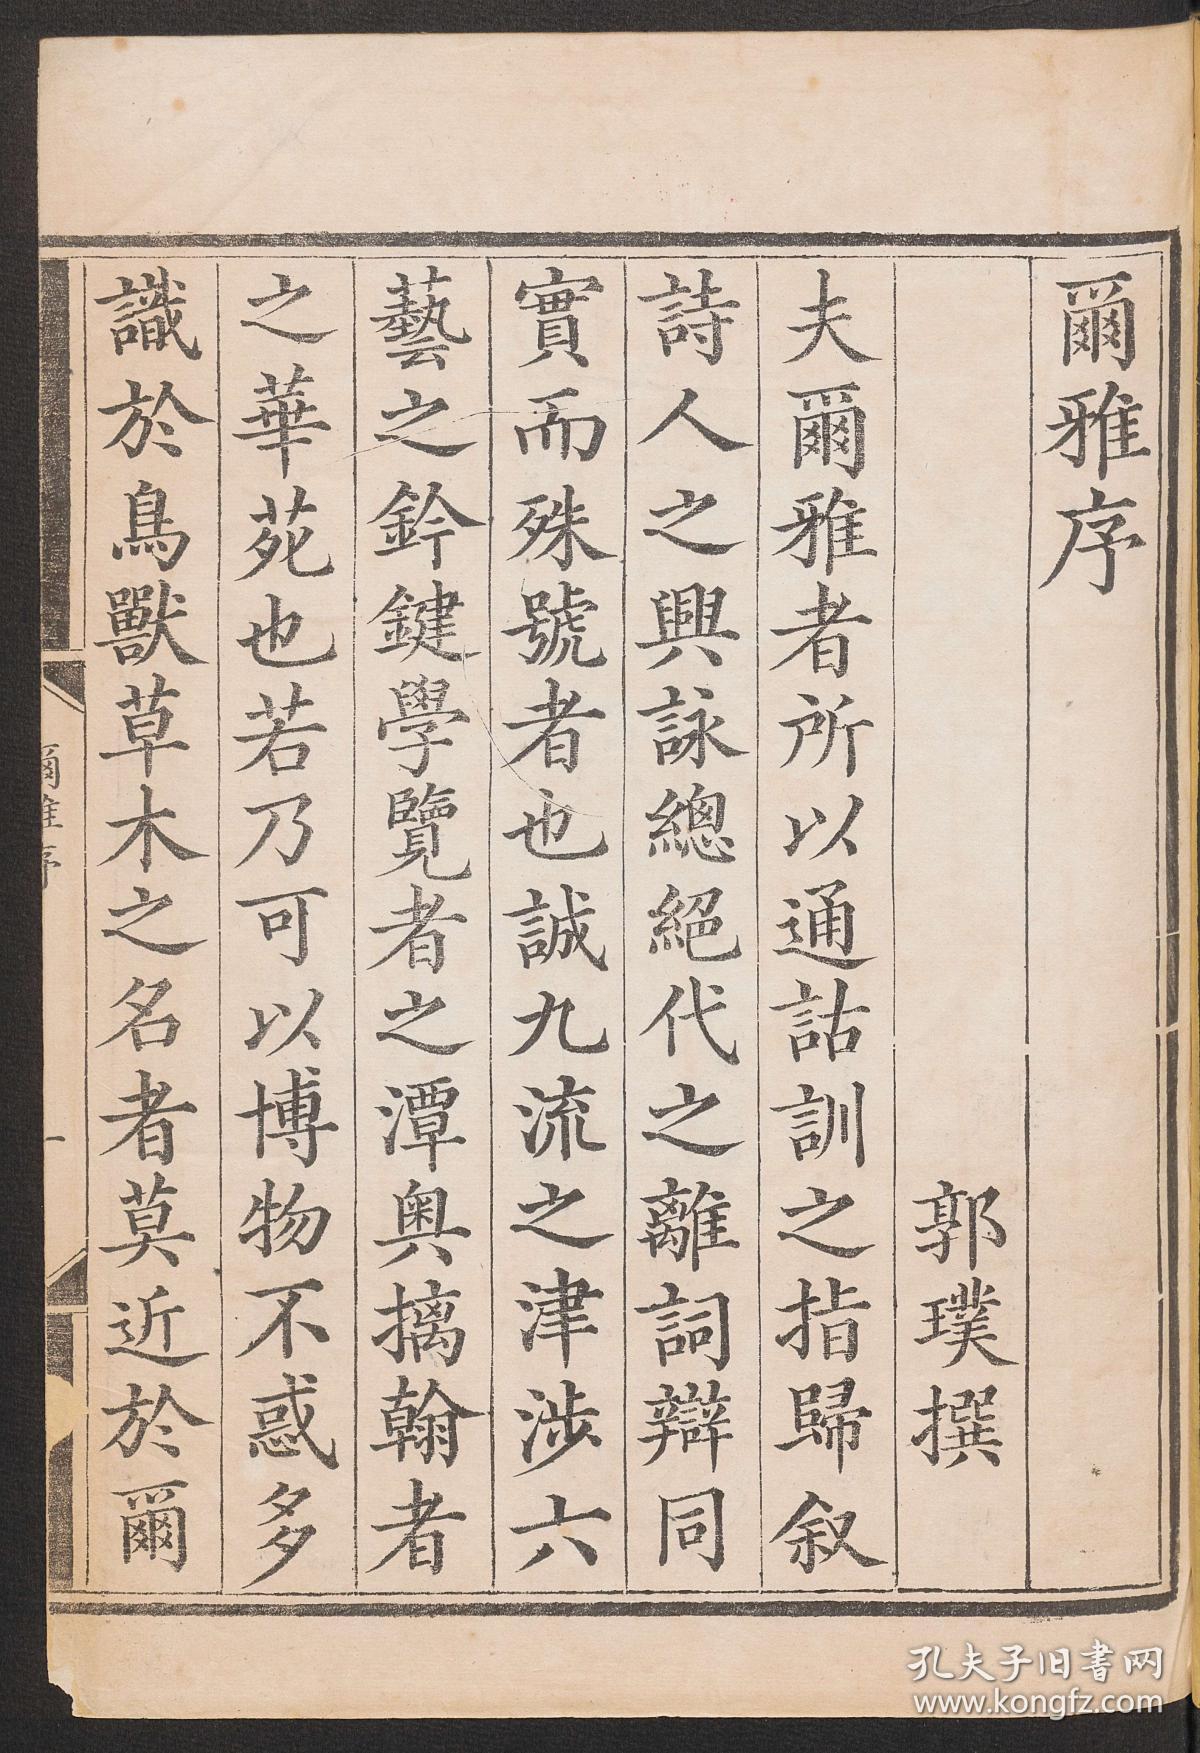 爾雅序
郭璞撰
夫爾雅者所以通詁訓之指歸叙
詩人之興詠總絕代之離詞辯同
實而殊號者也誠九流之津涉六
藝之鈐鍵學覽者之潭奧摛翰者
之華苑也若乃可以博物不惑多
識於鳥獸草木之名者莫近於爾
爾雅序
一
孔夫子旧書网
www.kongfz.com